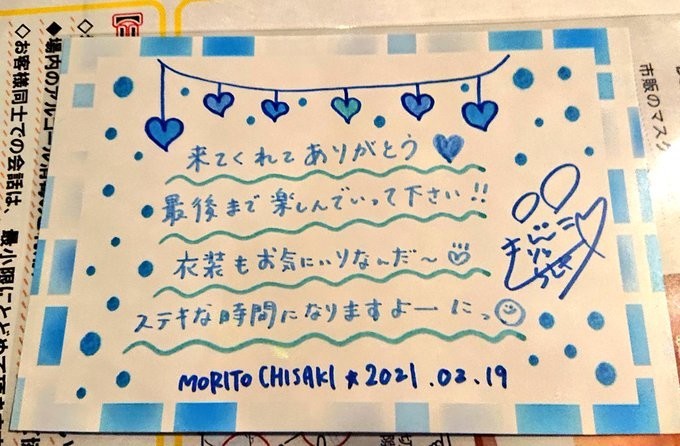 来てくれてありがとう
最後まで楽しんでいって下さい!!
衣装もお気にいりなんだ〜
ステキな時間になりますよーにっ
MORITO CHISAKI★2021.03.19
◆場内のアルコール消毒
◇お客様同士での会話は、最小限にとどめて
市販のマスク